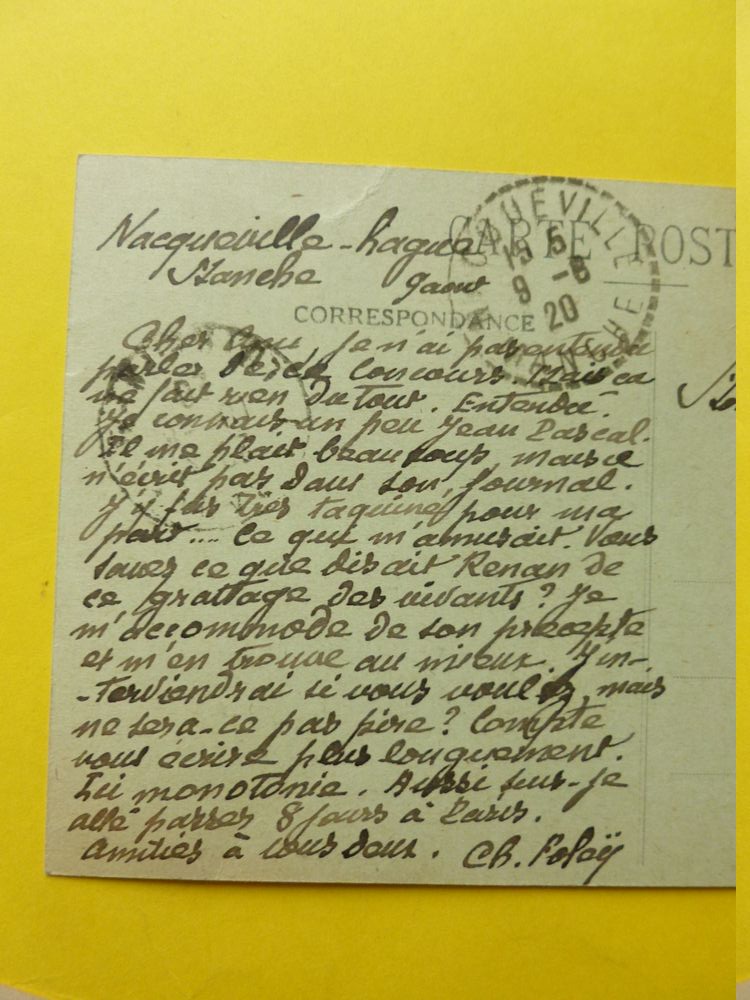 Nacqueville-hague
Manche 9 aout
CARTE POST
QUEVILLE
15 5
9 -8
20
CORRESPONDANCE
Cher Ami, Je n'ai pas entendu
parler de Concours. Mais ça
ne fait rien du tout. Entendu.
Je connais un peu Jean Pascal.
Il me plait beaucoup, mais je
n'écris pas dans son Journal.
J'y fus très taquiné, pour ma
part.... Ce qui m'amusait. Vous
savez ce que disait Renan de
ce grattage des vivants? Je
m'accommode de son précepte
et m'en trouve au mieux. J'in-
-terviendrai si vous voulez, mais
ne sera-ce pas pire? Compte
vous écrire plus longuement.
Ici monotonie. Aussi suis-je
allé passer 8 jours à Paris.
Amitiés à vous deux. Ch. Foleÿ